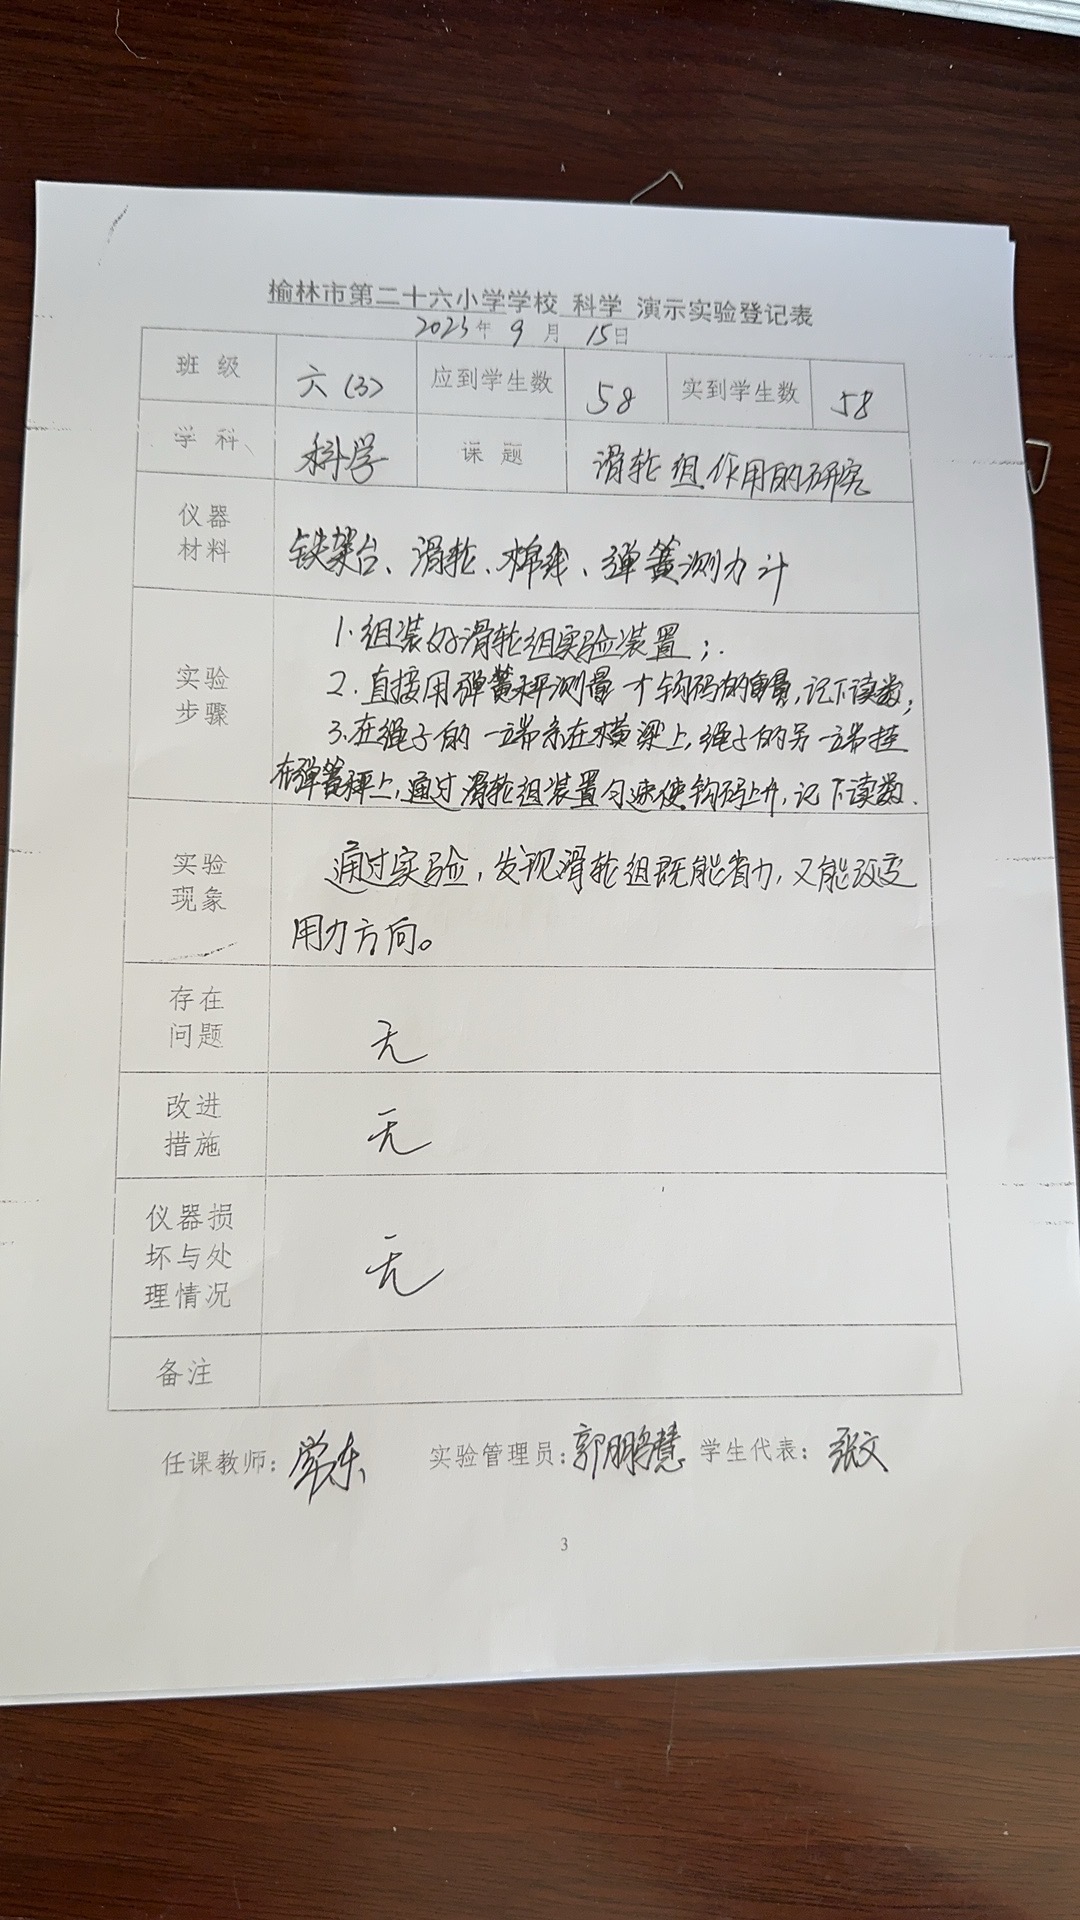 榆林市第二十六小学学校 科学 演示实验登记表
2023年 9 月 15日
班 级 六(3) 应到学生数 58 实到学生数 58
学 科 科学 课 题 滑轮组作用的研究
仪器
材料
铁架台、滑轮、棉线、弹簧测力计
实验
步骤
1.组装好滑轮组实验装置;
2.直接用弹簧秤测量 钩码的重量,记下读数;
3.在绳子的一端系在横梁上,绳子的另一端挂
在弹簧秤上,通过滑轮组装置匀速使钩码上升,记下读数.
实验
现象
通过实验,发现滑轮组既能省力,又能改变
用力方向。
存在
问题
无
改进
措施
无
仪器损
坏与处
理情况
无
备注
任课教师: 实验管理员:郭鹏慧 学生代表:张文
3